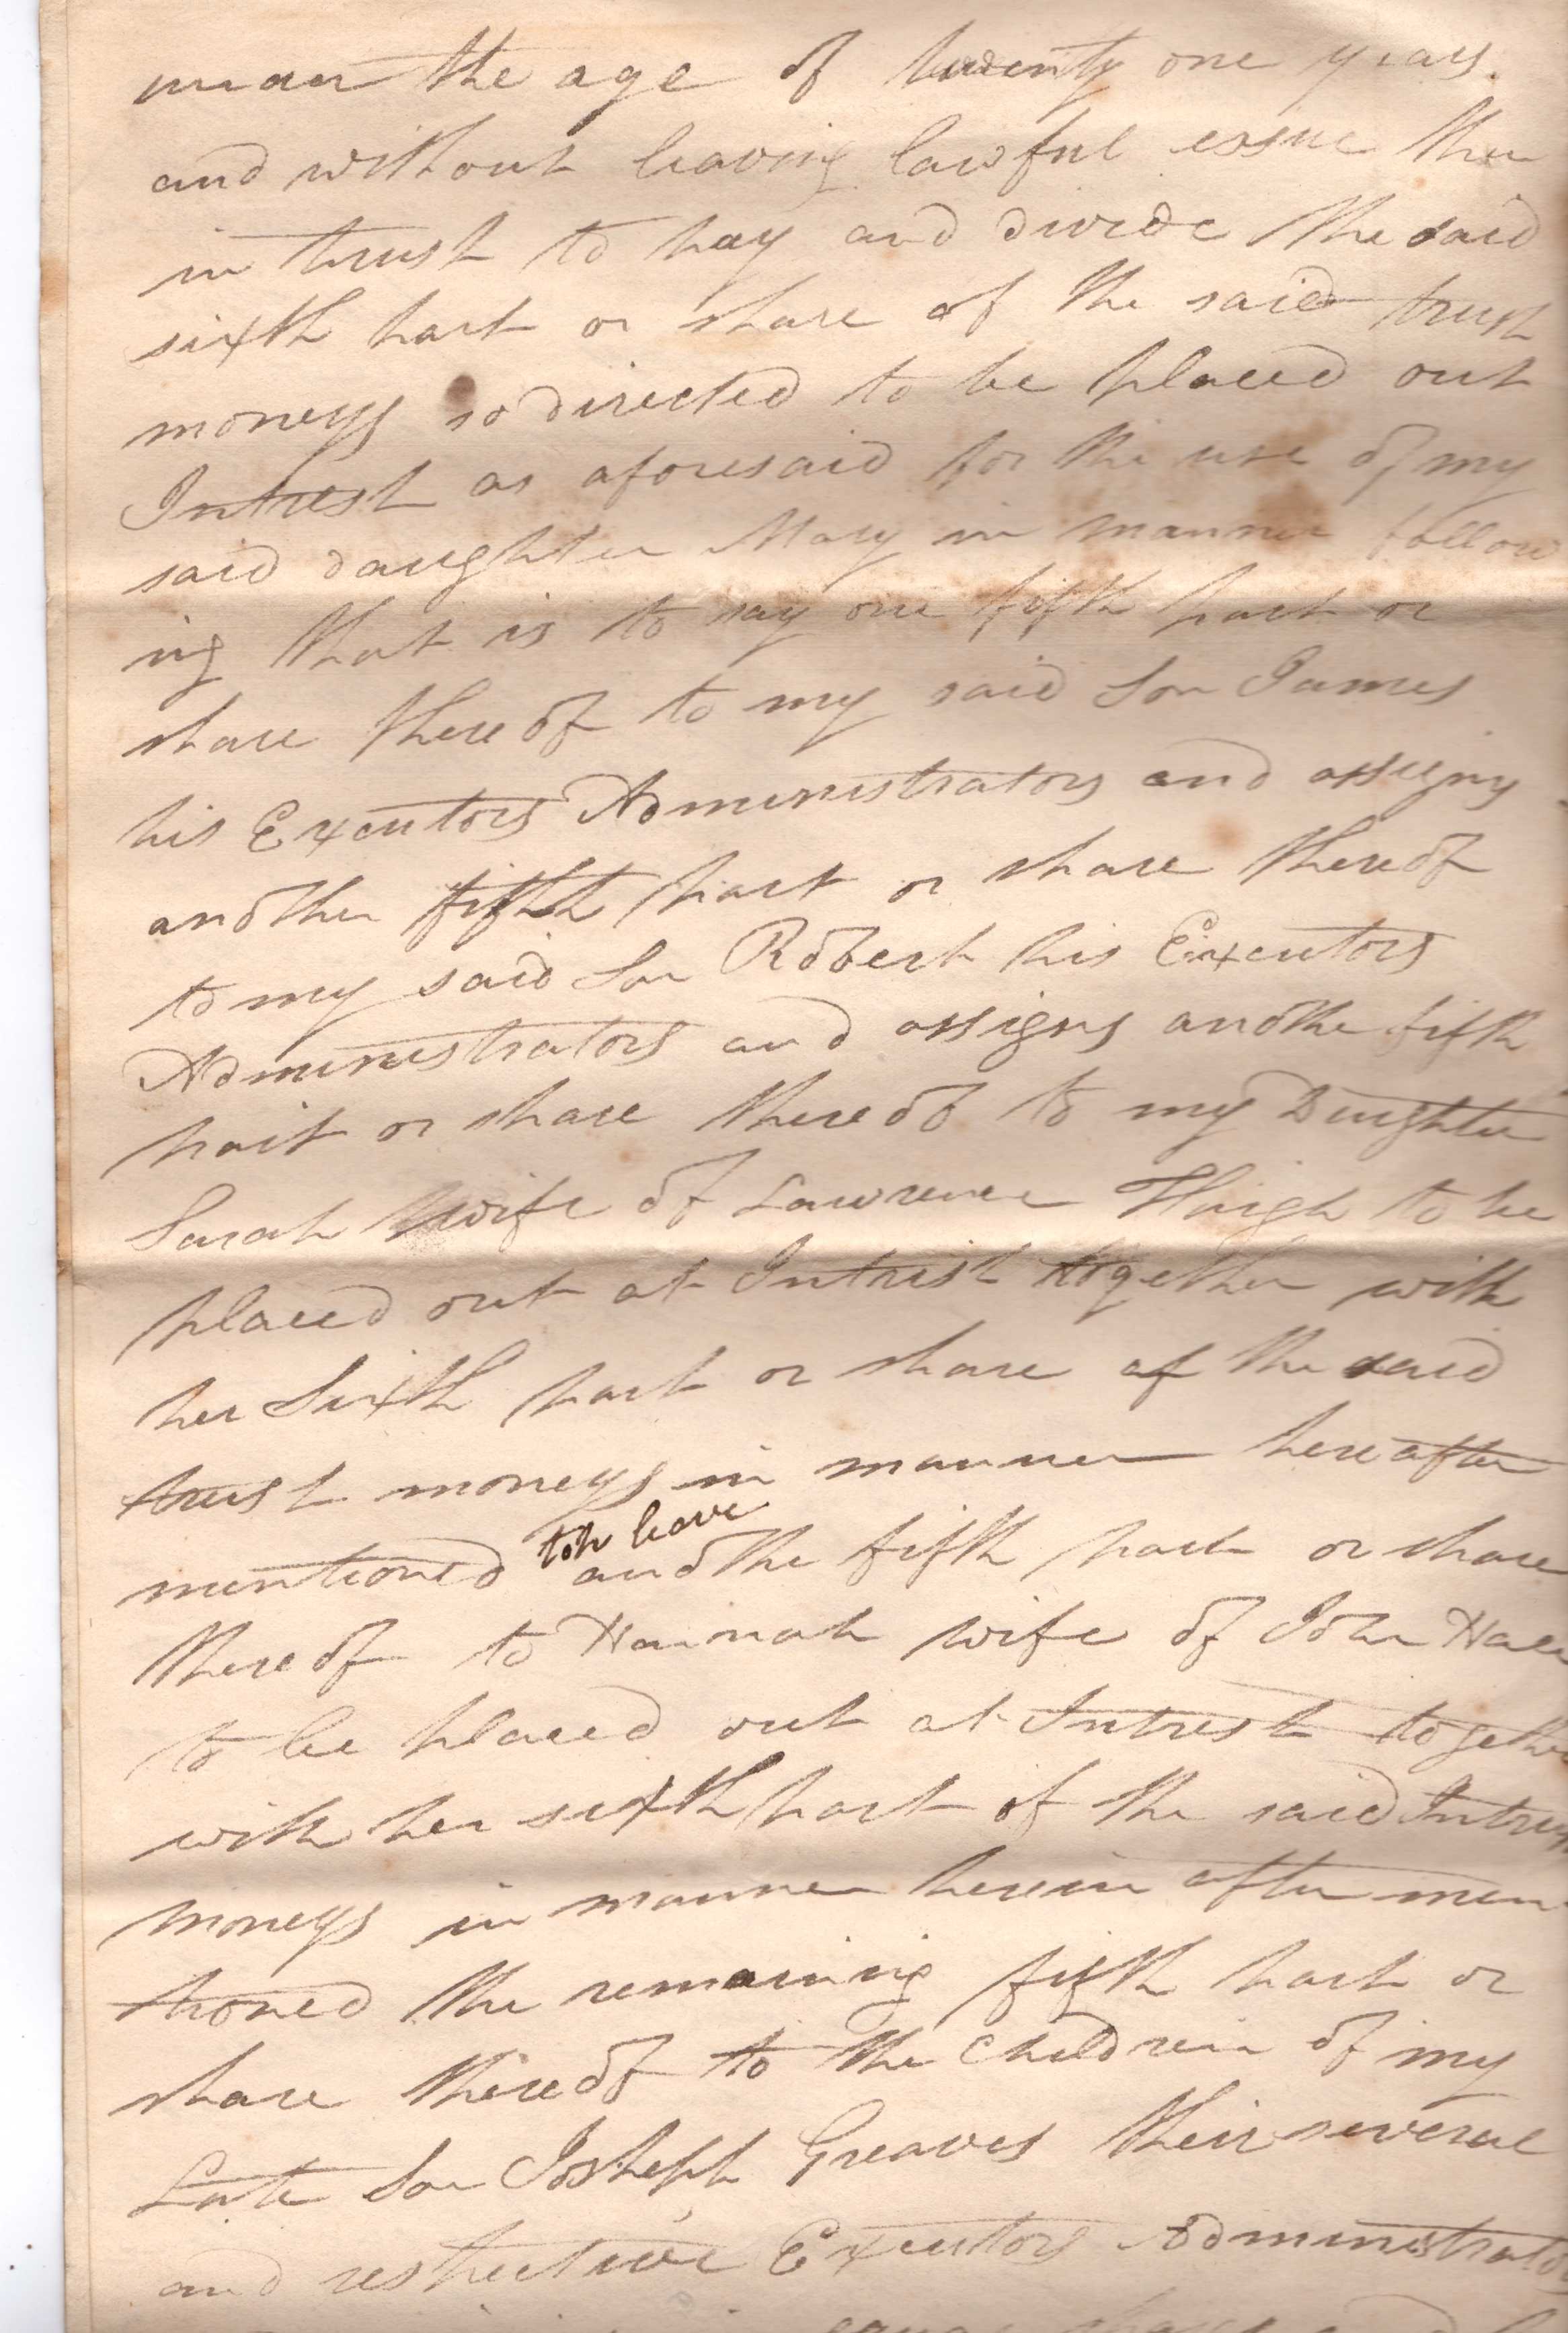 under the age of twenty one years
and without leaving lawful issue then
in trust to pay and divide the said
sixth part or share of the said trust
moneys so directed to be placed out
Intrest as aforesaid for the use of my
said daughter Mary in manner follow
ing that is to say one fifth part or
share thereof to my said Son James
his Executors Administrators and assigns
another fifth part or share thereof
to my said Son Robert his Executors
Administrators and assigns another fifth
part or share thereof to my Daughter
Sarah wife of Lawrence Haigh to be
placed out at Intrest together with
her Sixth part or share of the said
trust moneys in manner hereafter
mentioned another fifth part or share
thereof to Hannah wife of John
to be placed out at Intrest together
with her sixth part of the said
moneys in manner herein after men
tioned the remaining fifth part or
share thereof to the children of my
Late Son Joseph Greaves their several
and respective Executors Administrators